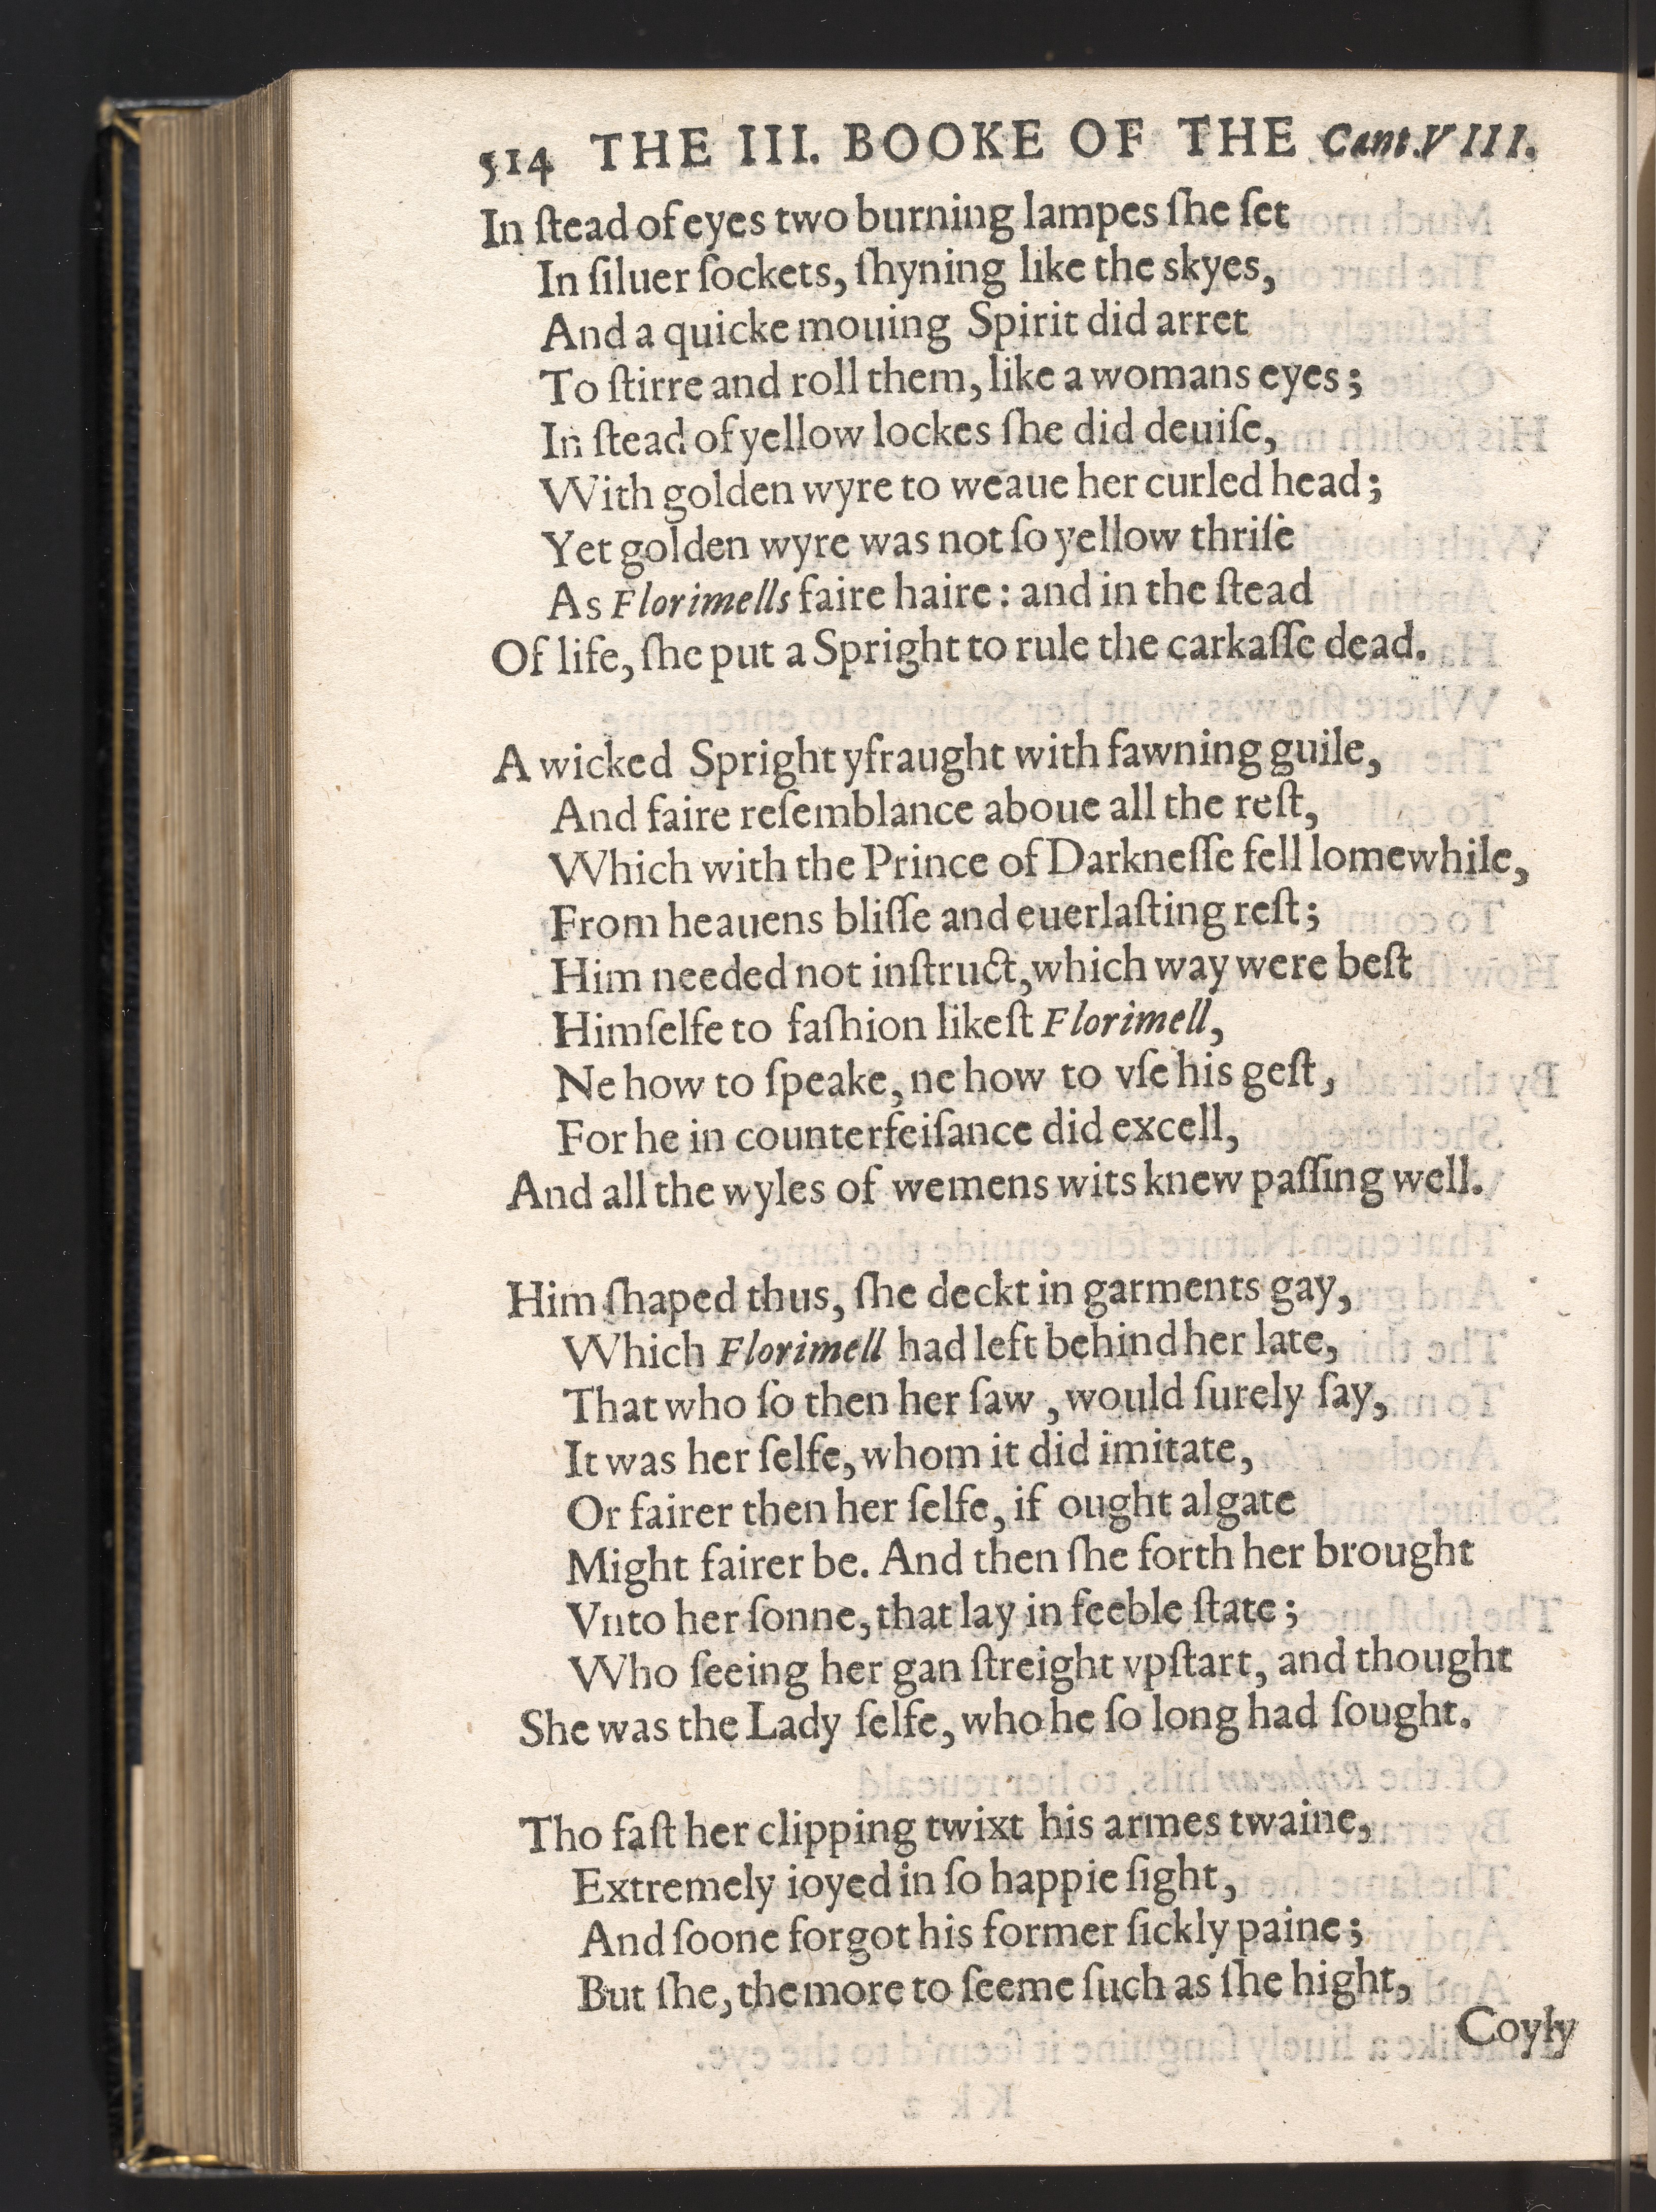 514 THE III. BOOKE OF THE Cant.VIII.
In ſtead of eyes two burning lampes ſhe ſet
In ſiluer ſockets, ſhyning like the skyes,
And a quicke mouing Spirit did arret
To ſtirre and roll them, like a womans eyes;
In ſtead of yellow lockes ſhe did deuiſe,
With golden wyre to weaue her curled head;
Yet golden wyre was not ſo yellow thriſe
As Florimells faire haire: and in the ſtead
Of life, ſhe put a Spright to rule the carkaſſe dead.
A wicked Spright yfraught with fawning guile,
And faire reſemblance aboue all the reſt,
Which with the Prince of Darkneſſe fell ſomewhile,
From heauens bliſſe and euerlaſting reſt;
Him needed not inſtruct, which way were beſt
Himſelfe to faſhion likeſt Florimell,
Ne how to ſpeake, ne how to vſe his geſt,
For he in counterfeiſance did excell,
And all the wyles of wemens wits knew paſſing well.
Him ſhaped thus, ſhe deckt in garments gay,
Which Florimell had left behind her late,
That who ſo then her ſaw, would ſurely ſay,
It was her ſelfe, whom it did imitate,
Or fairer then her ſelfe, if ought algate
Might fairer be. And then ſhe forth her brought
Vnto her ſonne, that lay in feeble ſtate;
Who ſeeing her gan ſtreight vpſtart, and thought
She was the Lady ſelfe, who he ſo long had ſought.
Tho faſt her clipping twixt his armes twaine,
Extremely ioyed in ſo happie ſight,
And ſoone forgot his former ſickly paine;
But ſhe, the more to ſeeme ſuch as ſhe hight,
Coyly